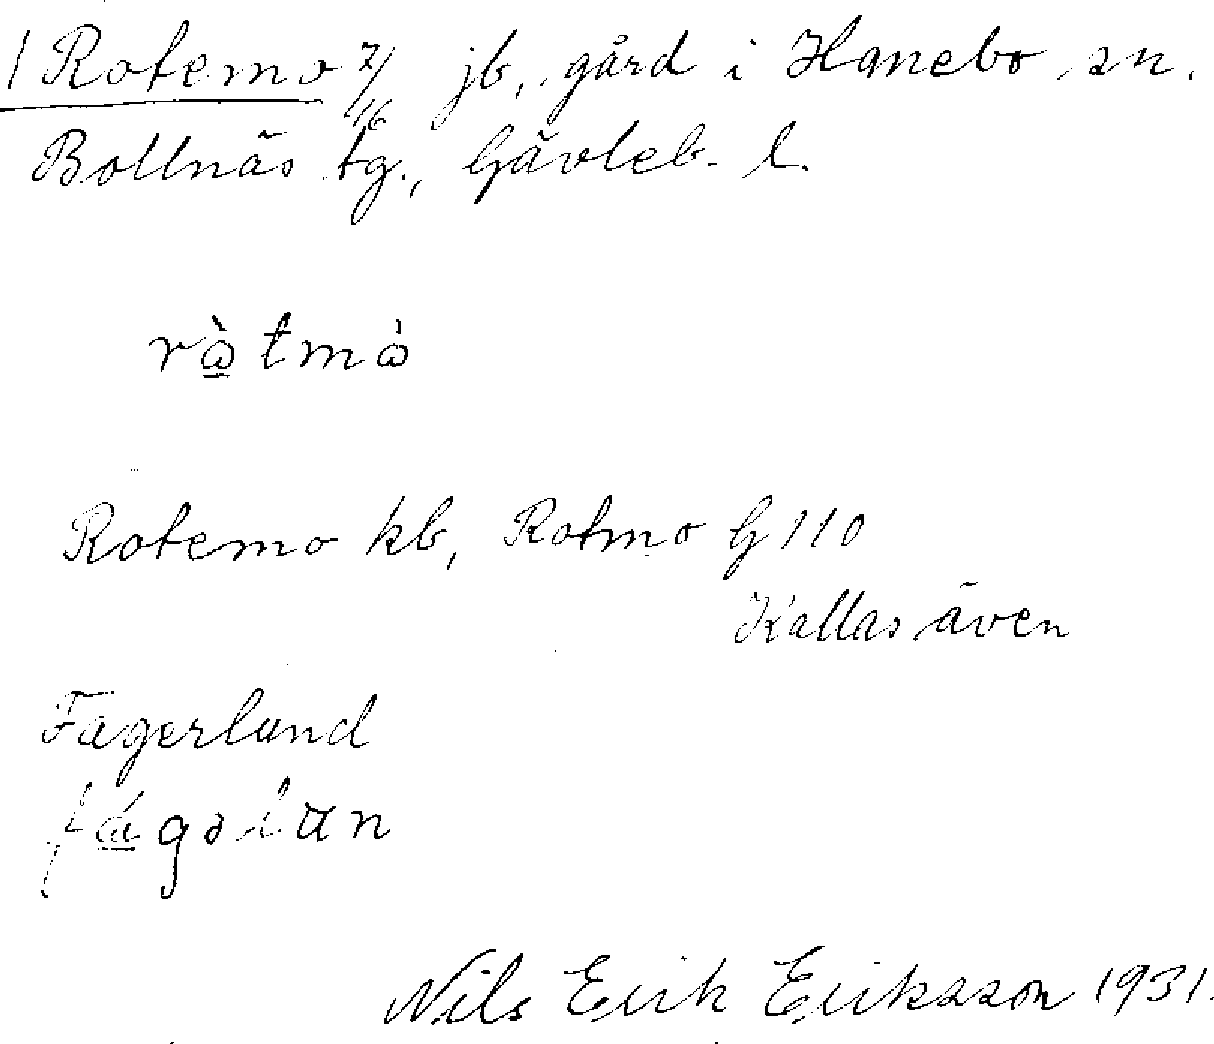 1 Rotemo 7/16 jb., gård i Hanebo sn.
Bollnäs tg., Gävleb. l.
rɷ̀tmɷ̀
Rotemo kb, Rotmo G 110
Kallas även
Fagerlund
Nils Erik Eriksson 1931.